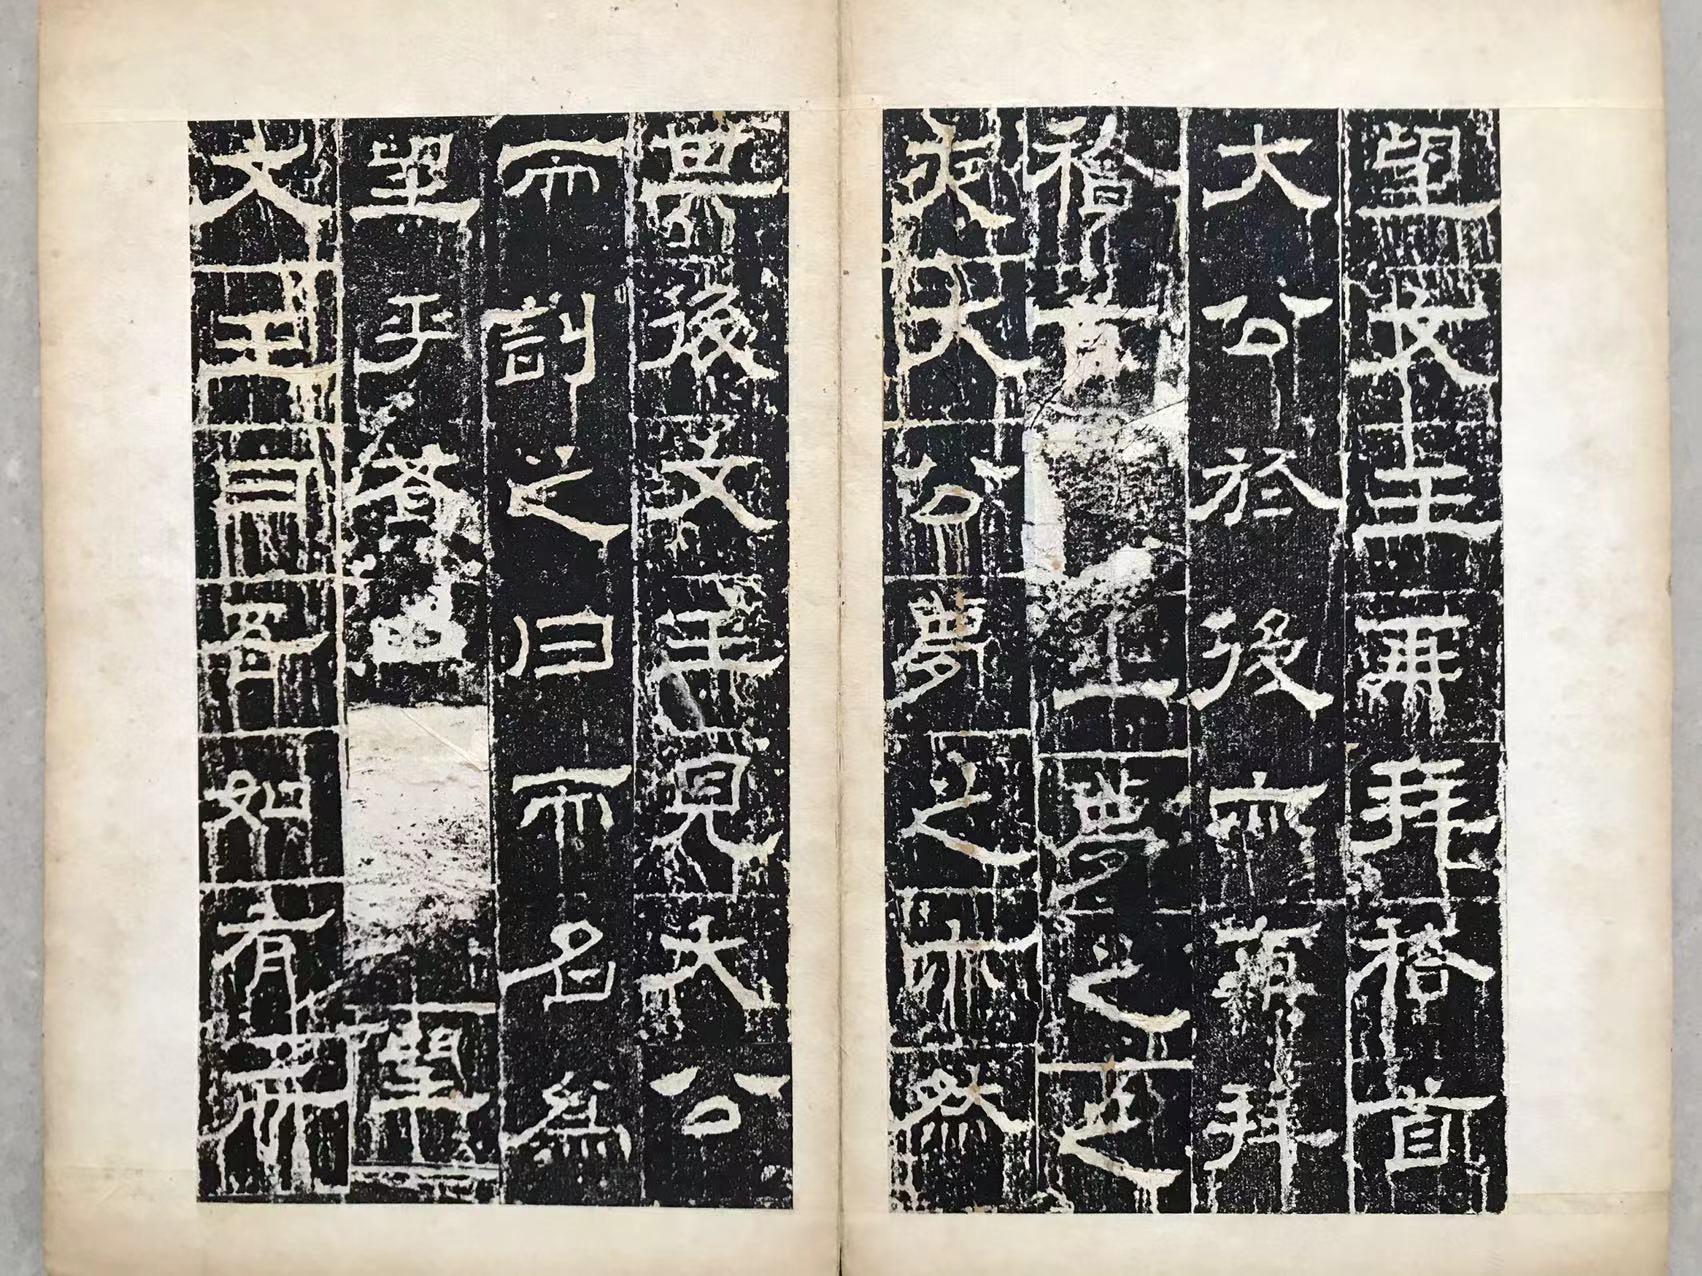 望文王再拜稽首
大公於後亦再拜
稽首王夢之之
夜大公夢之亦然
其後文王見大公
而訓之曰而名爲
望乎荅曰望
文王曰吾如有所